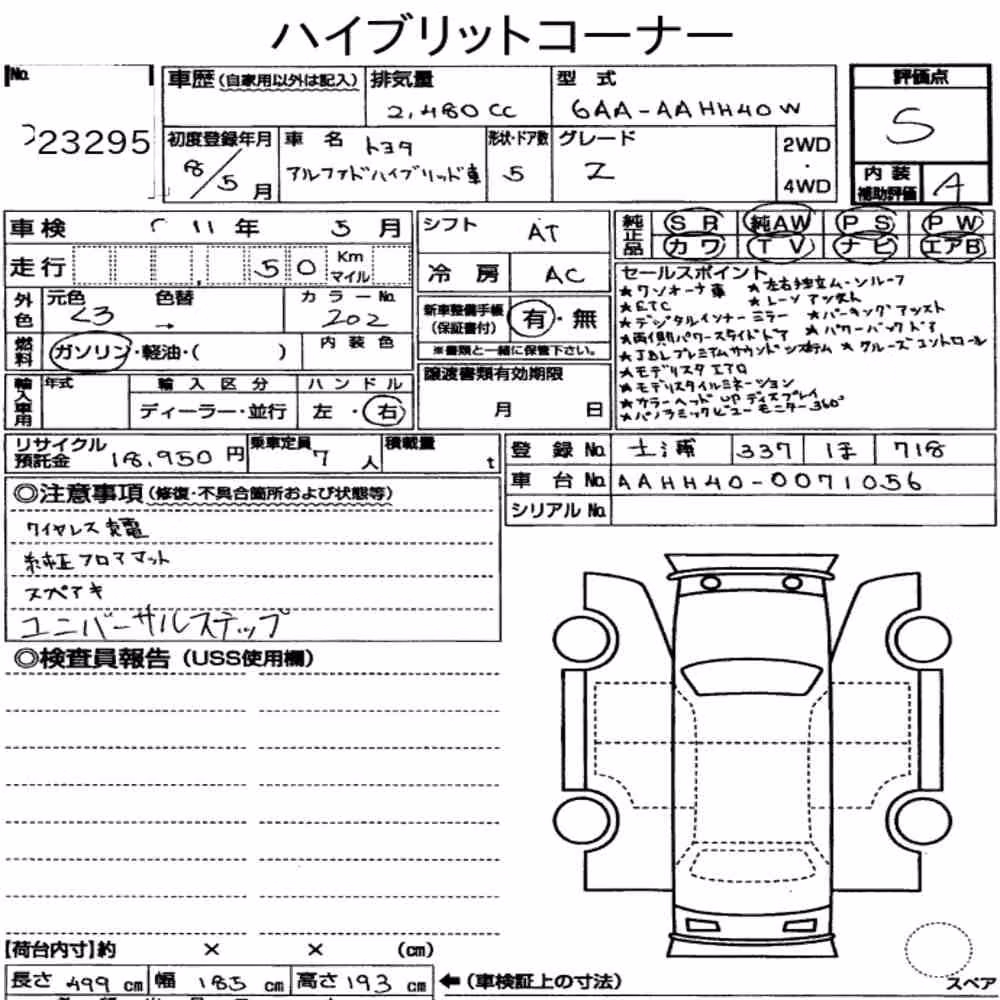 ハイブリットコーナー
No.
23295
車歴(自家用以外は記入)
排気量
2,480cc
型式
6AA-AAHH40W
評価点
S
初度登録年月
8/5月
車名
トヨタ
アルファドハイブリッド車
形状・ドア数
5
グレード
Z
2WD
・
4WD
内装
補助評価
A
車検 11年 5月
走行 , 50 Km マイル
シフト
AT
冷房
AC
純正品
SR 純AW PS PW
カワ TV ナビ エアB
外色
元色 色替
23 →
カラーNo.
202
燃料
ガソリン・軽油・( )
内装色
新車整備手帳
(保証書付)
有・無
※書類と一緒に保管下さい。
譲渡書類有効期限
月 日
輸入車用
年式
輸入区分
ディーラー・並行
ハンドル
左・右
セールスポイント
★ワンオーナ車 ★左右独立ムーンルーフ
★ETC ★レーンアシスト
★デジタルインナーミラー ★パーキングアシスト
★両側パワースライドドア ★パワーバックドア
★JBLプレミアムサウンドシステム ★クルーズコントロール
★モデリスタエアロ
★モデリスタイルミネーション
★カラーヘッドupディスプレイ
★パノラミックビューモニター360°
リサイクル
預託金
18,950円
乗車定員
7人
積載量
t
登録No. 土浦 337 ほ 718
車台No. AAHH40-0071056
シリアルNo.
◎注意事項(修復・不具合箇所および状態等)
ワイヤレス充電
純正フロアマット
スペアキ
ユニバーサルステップ
◎検査員報告(USS使用欄)
【荷台内寸】約 × × (cm)
長さ 499 cm 幅 185 cm 高さ 193 cm
←(車検証上の寸法)
スペア